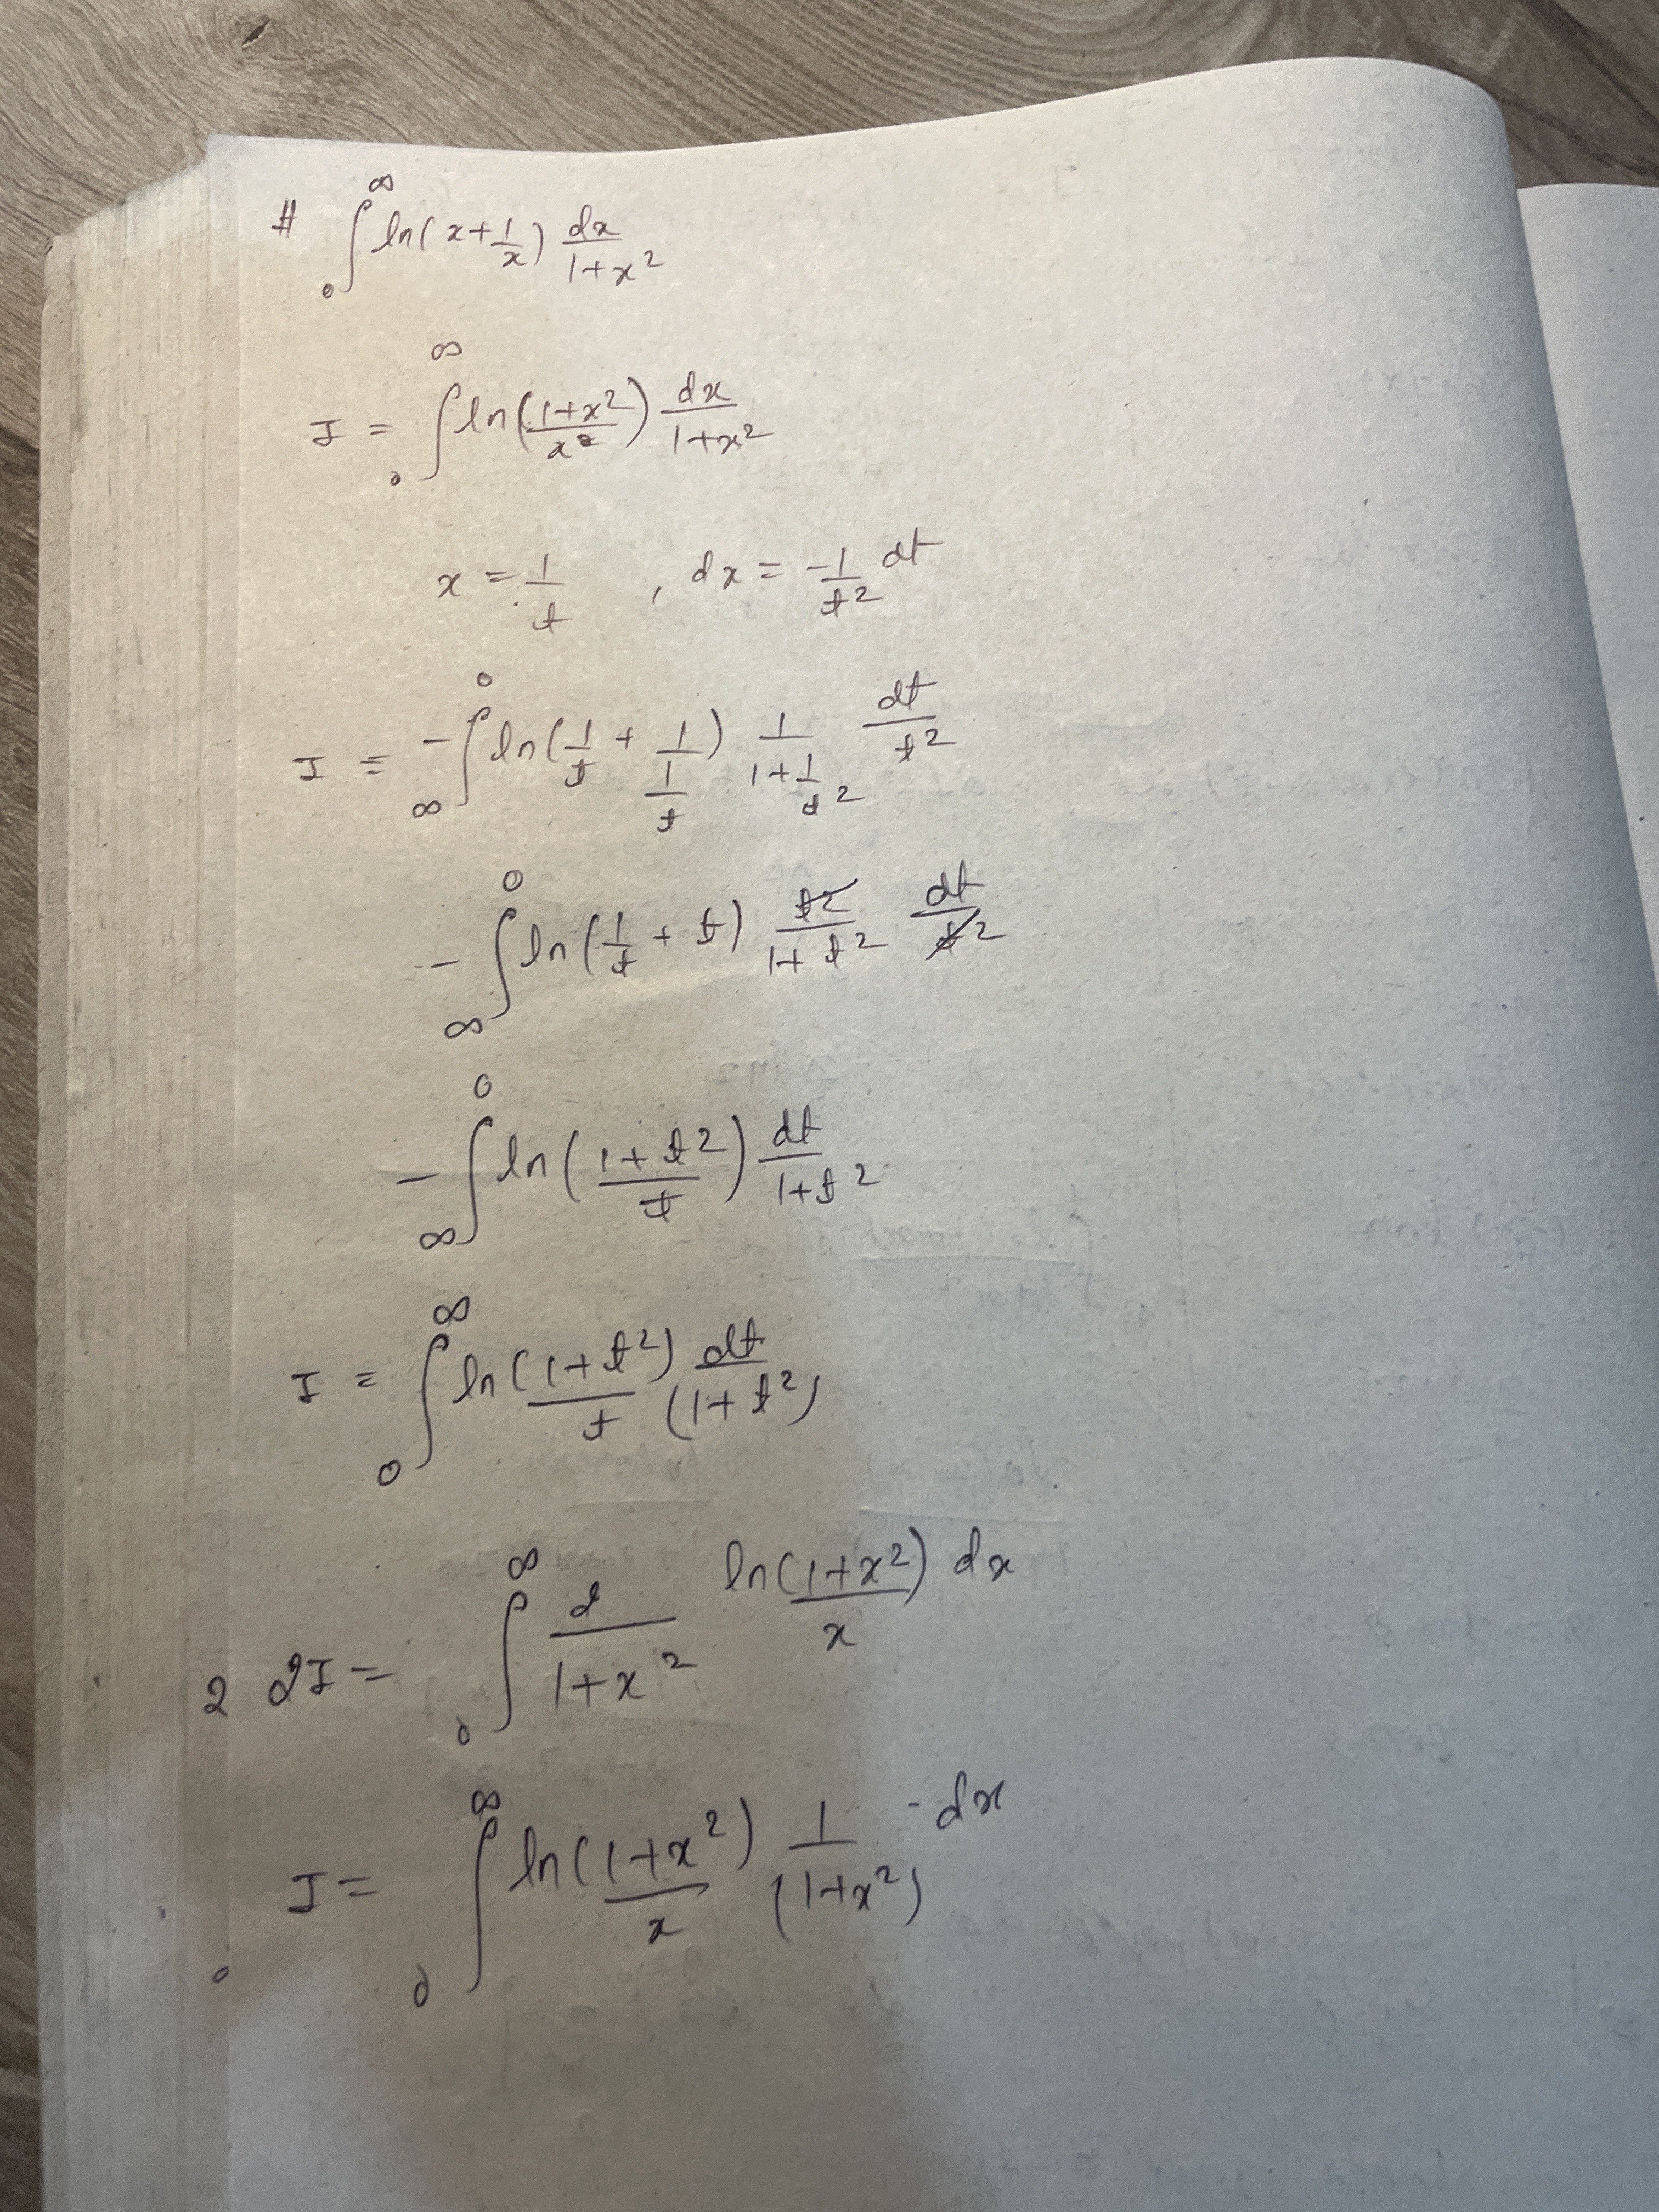 # ∫₀^∞ ln(x + 1/x) dx/(1+x²)
I = ∫₀^∞ ln((1+x²)/x²) dx/(1+x²)
x = 1/t , dx = -1/t² dt
I = -∫_∞^0 ln(1/t + 1/(1/t)) 1/(1+1/t²) dt/t²
- ∫_∞^0 ln(1/t + t) t²/(1+t²) dt/t²
- ∫_∞^0 ln((1+t²)/t) dt/(1+t²)
I = ∫₀^∞ ln((1+t²)/t) dt/(1+t²)
2 2I = ∫₀^∞ 2/(1+x²) ln((1+x²)/x) dx
I = ∫₀^∞ ln((1+x²)/x) 1/(1+x²) dx